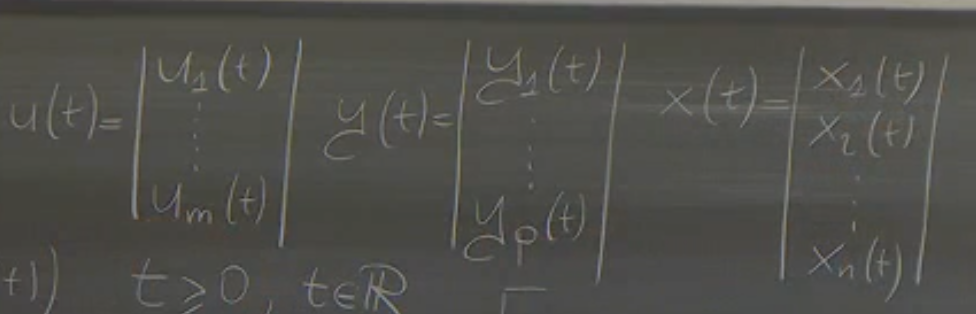 u(t)= | u₁(t) ⋮ uₘ(t) | y(t)= | y₁(t) ⋮ yₚ(t) | x(t)= | x₁(t) x₂(t) ⋮ xₙ(t) |
t)) t ≥ 0, t∈ℝ